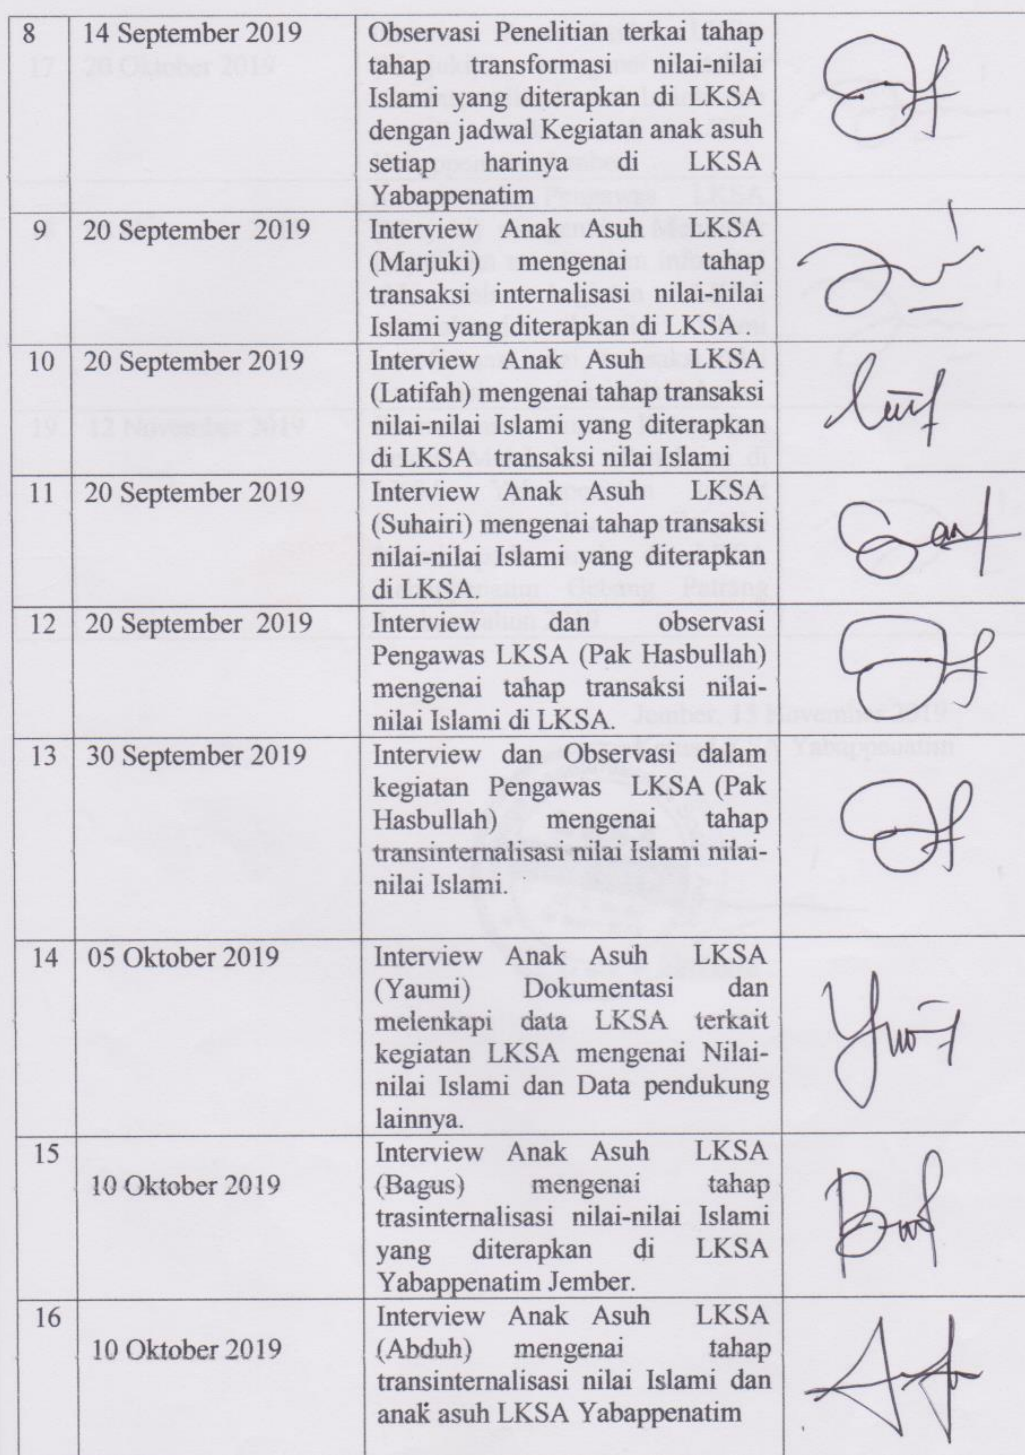 8 14 September 2019 Observasi Penelitian terkai tahap
tahap transformasi nilai-nilai
Islami yang diterapkan di LKSA
dengan jadwal Kegiatan anak asuh
setiap harinya di LKSA
Yabappenatim
9 20 September 2019 Interview Anak Asuh LKSA
(Marjuki) mengenai tahap
transaksi internalisasi nilai-nilai
Islami yang diterapkan di LKSA .
10 20 September 2019 Interview Anak Asuh LKSA
(Latifah) mengenai tahap transaksi
nilai-nilai Islami yang diterapkan
di LKSA transaksi nilai Islami
11 20 September 2019 Interview Anak Asuh LKSA
(Suhairi) mengenai tahap transaksi
nilai-nilai Islami yang diterapkan
di LKSA
12 20 September 2019 Interview dan observasi
Pengawas LKSA (Pak Hasbullah)
mengenai tahap transaksi nilai-
nilai Islami di LKSA.
13 30 September 2019 Interview dan Observasi dalam
kegiatan Pengawas LKSA (Pak
Hasbullah) mengenai tahap
transinternalisasi nilai Islami nilai-
nilai Islami.
14 05 Oktober 2019 Interview Anak Asuh LKSA
(Yaumi) Dokumentasi dan
melenkapi data LKSA terkait
kegiatan LKSA mengenai Nilai-
nilai Islami dan Data pendukung
lainnya.
15 Interview Anak Asuh LKSA
10 Oktober 2019 (Bagus) mengenai tahap
trasinternalisasi nilai-nilai Islami
yang diterapkan di LKSA
Yabappenatim Jember.
16 Interview Anak Asuh LKSA
10 Oktober 2019 (Abduh) mengenai tahap
transinternalisasi nilai Islami dan
anak asuh LKSA Yabappenatim